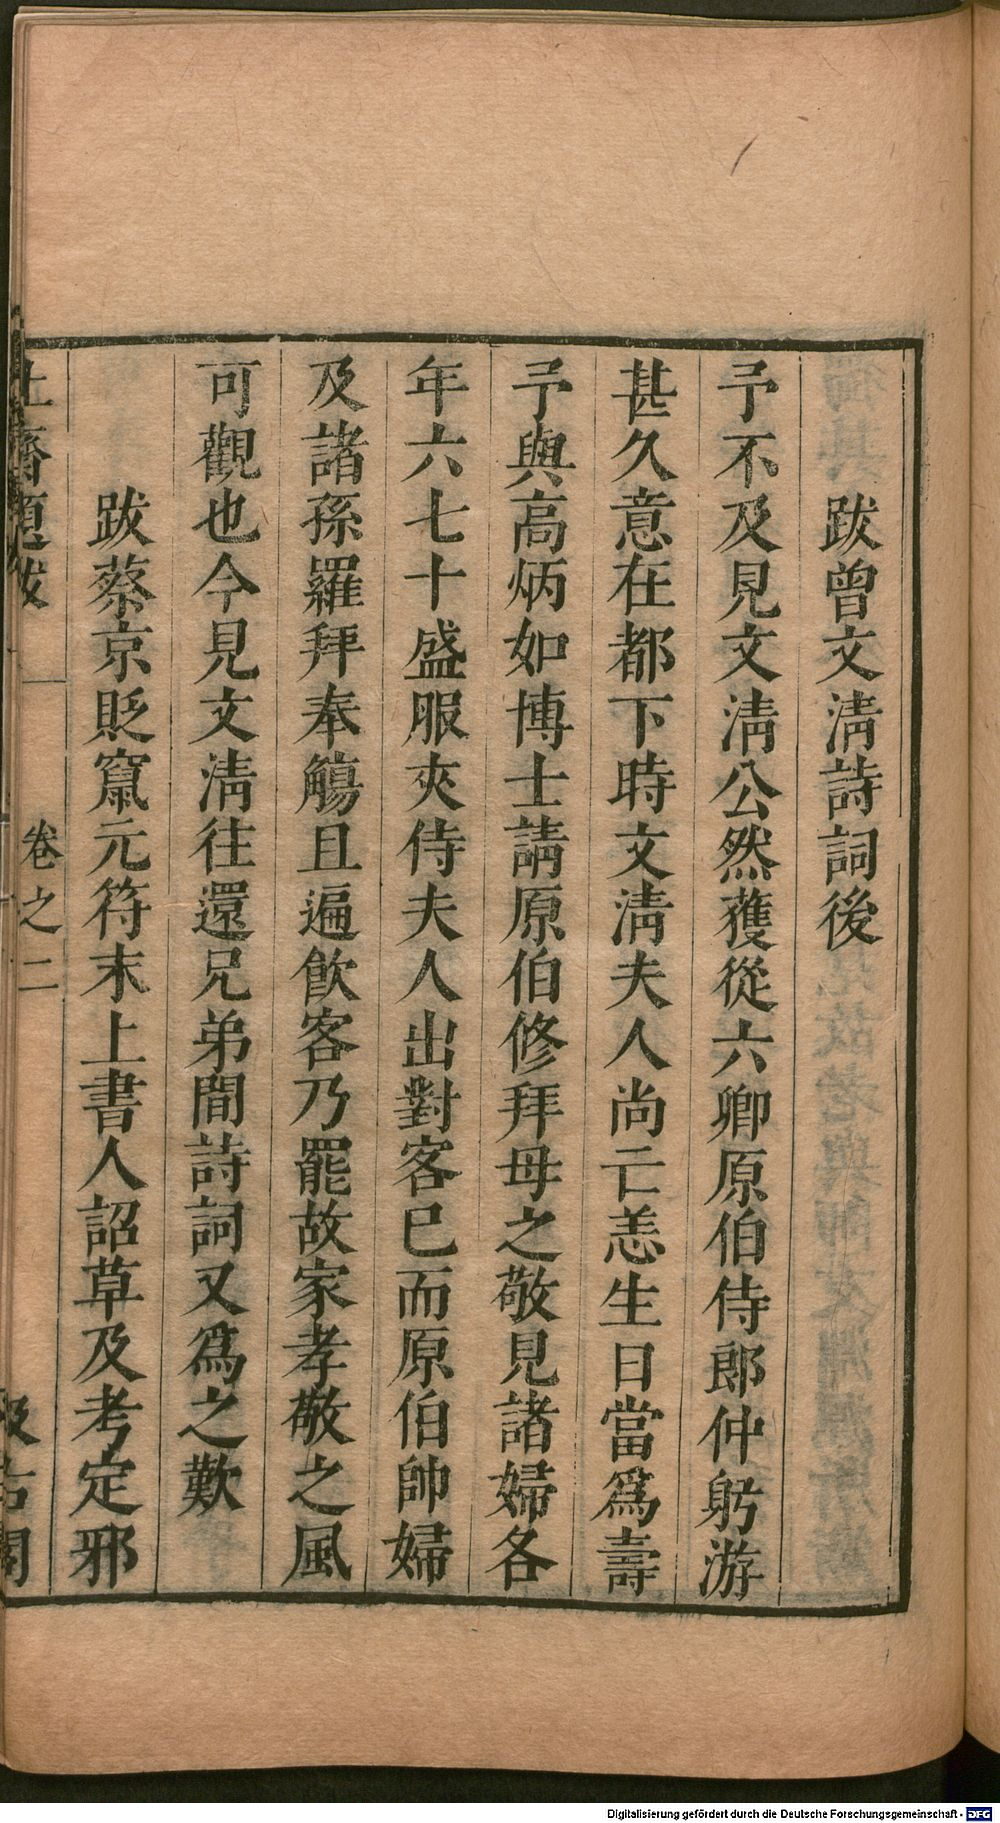 跋曾文清詩詞後
予不及見文清公然獲從六卿原伯侍郎仲躬游
甚久意在都下時文清夫人尚亡恙生日當爲壽
予與高炳如博士請原伯修拜母之敬見諸婦各
年六七十盛服夾侍夫人出對客已而原伯帥婦
及諸孫羅拜奉觴且遍飲客乃罷故家孝敬之風
可觀也今見文清往還兄弟間詩詞又爲之歎
跋蔡京貶竄元符末上書人詔草及考定邪
止齋題跋 卷之二 汲古閣
Digitalisierung gefördert durch die Deutsche Forschungsgemeinschaft - DFG